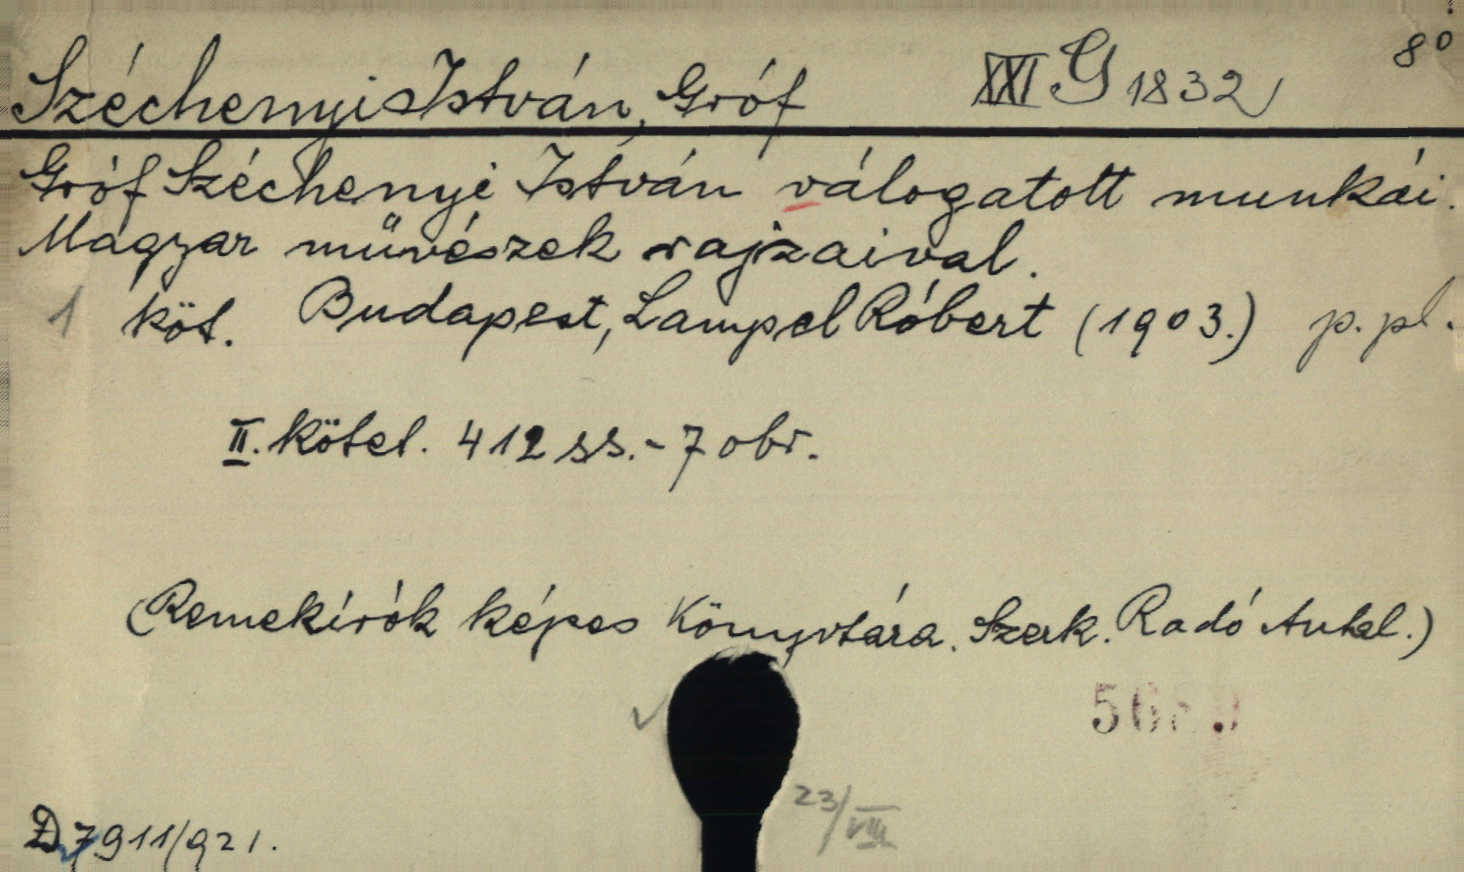 Széchenyi István, Gróf XXI G 1832 8°
Gróf Széchenyi István válogatott munkái.
Magyar művészek rajzaival.
1 köt. Budapest, Lampel Róbert (1903.) p. pl.
II. kötet. 412 ss. - 7 obr.
(Remekírók képes Könyvtára. Szerk. Radó Antal.)
23/VIII
D 7911/921.